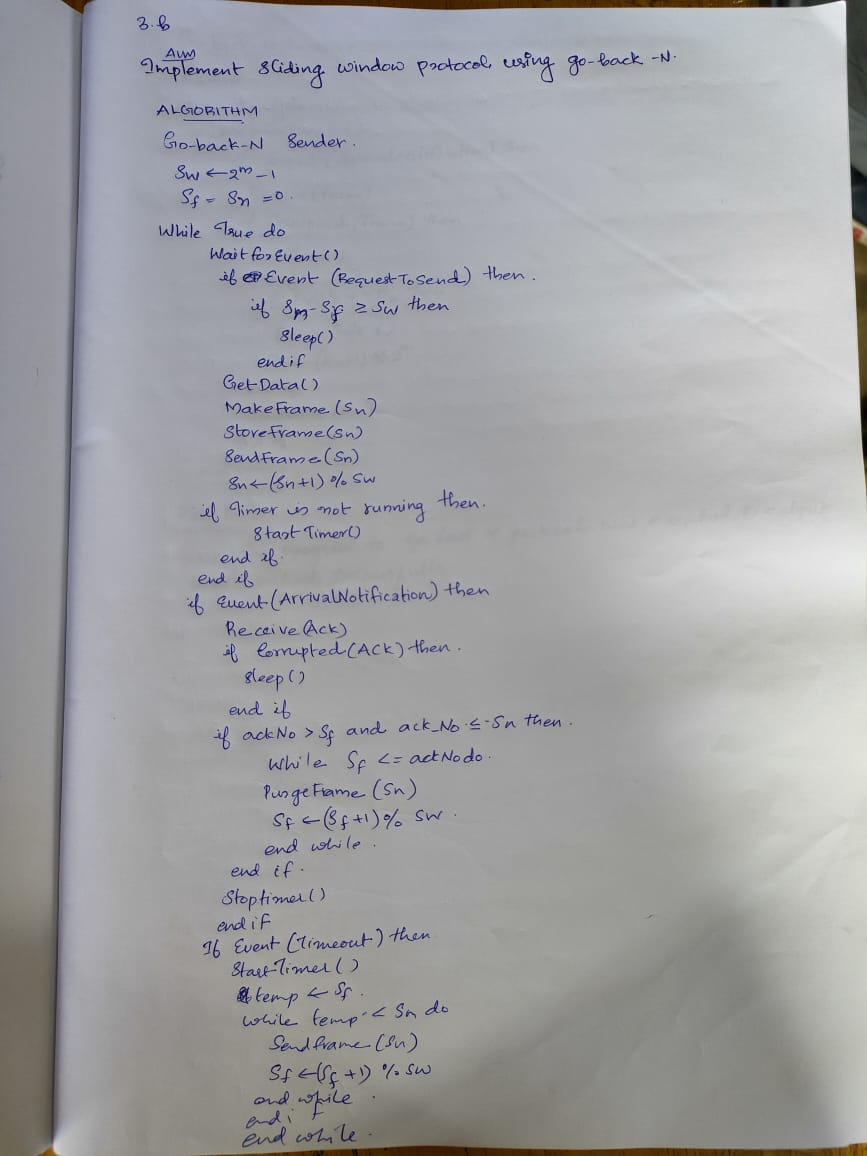 3.b
AIM
Implement Sliding window protocol using go-back-N.
ALGORITHM
Go-back-N Sender.
Sw ← 2^m - 1
Sf = Sn = 0.
While True do
Wait for Event()
if Event (Request To Send) then.
if Sn - Sf ≥ Sw then
Sleep()
endif
Get Data()
Make Frame (Sn)
Store Frame (Sn)
Send Frame (Sn)
Sn ← (Sn+1) % Sw
if Timer is not running then.
Start Timer()
end if.
end if
if Event (Arrival Notification) then
Receive (Ack)
if Corrupted (ACK) then.
Sleep ()
end if
if ackNo > Sf and ack_No ≤ Sn then.
while Sf <= actNo do.
Purge Frame (Sn)
Sf ← (Sf+1) % SW.
end while.
end if.
Stoptimer()
endif
If Event (Timeout) then
Start Timer ()
temp ← Sf.
while temp < Sn do
Sendframe (Sn)
Sf ← (Sf+1) % SW
end while.
endif
end while.